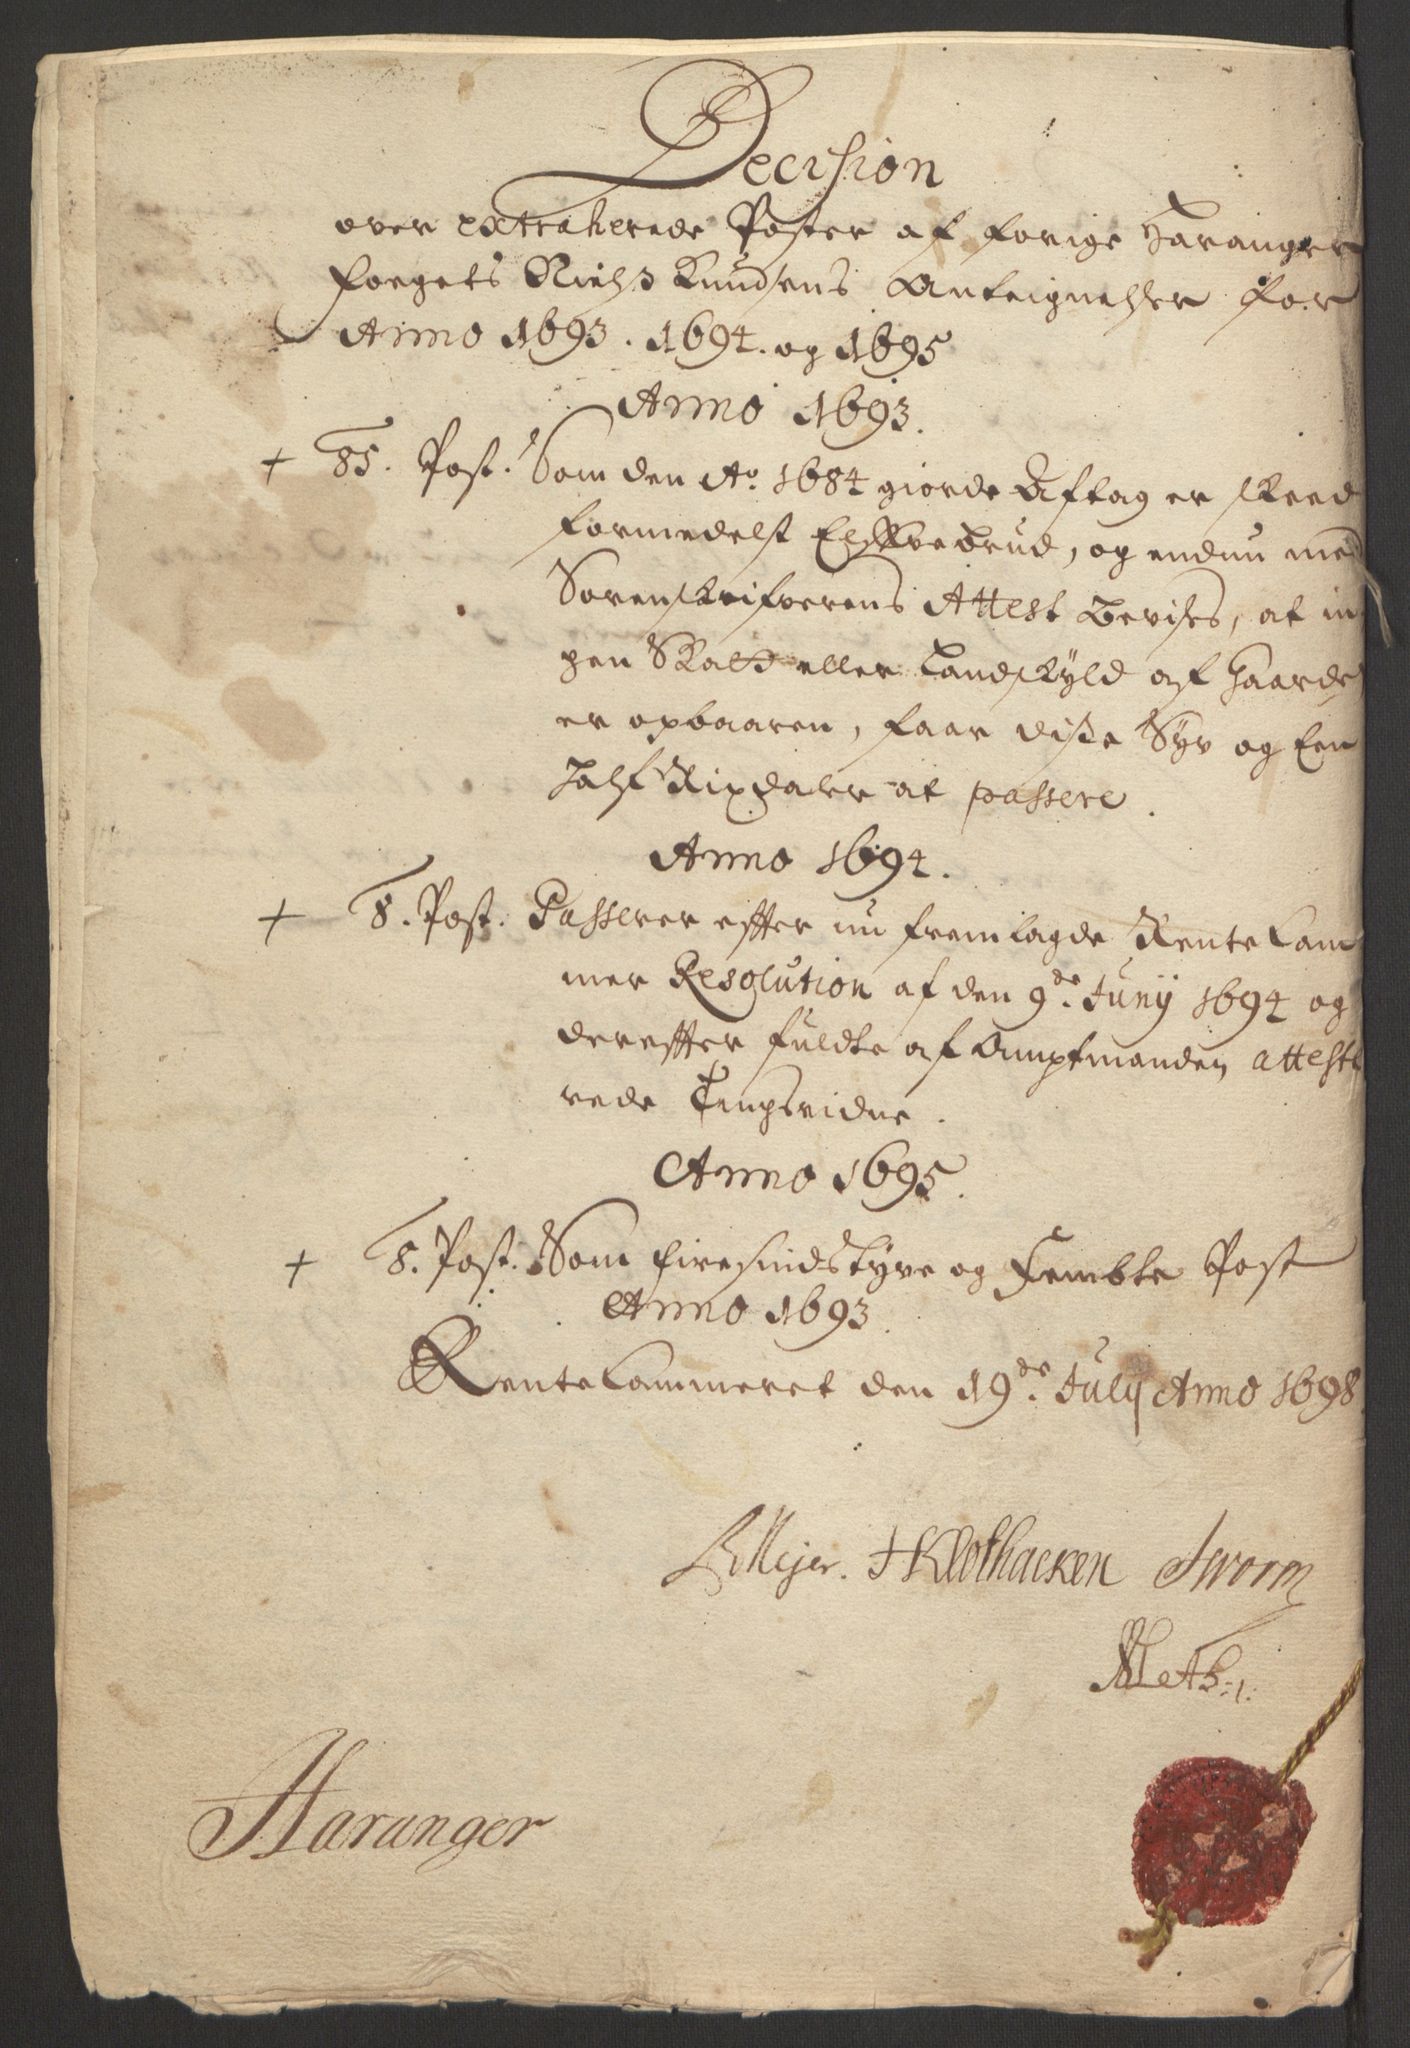 Decision
over extraherede Poster af forige Haranger
foegets Nielß Knudsens Anteignelser for
Anno 1693. 1694. og 1695
Anno 1693.
+ 85. Post. Som den Ao. 1684 giorde Aftag er skeed
formedelst Elffvebrud, og endnu med
Sorenskrifverens Attest bevises, at in
gen Skatt eller Landskyld af gaarde
er opbaaren, faar disse Syv og Een
half Rixdaler at passere.
Anno 1694.
+ 8. Post. Passerer effter nu fremlagde Rente Cam
mer Resolution af den 9de. Junij 1694 og
dereffter fuldte af Amptmanden atteste
rede Tingsvidne.
Anno 1695.
+ 8. Post. Som firesindstyve og Fembte Post
Anno 1693.
RenteCammeret den 19de. Julij Anno 1698.
Mejer. H Klothacken Jworm
Haranger